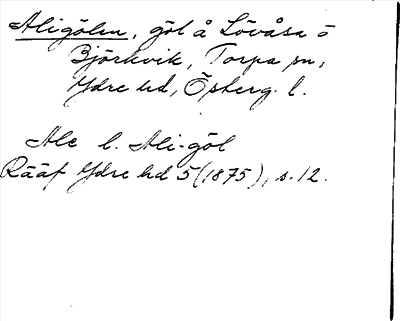 Aligölen, göl å Lövåsa ö
Björkvik, Torpa sn,
Ydre hd, Östergl.
Ale l. Ali-göl
Rääf Ydre hd 5 (1875), s. 12.